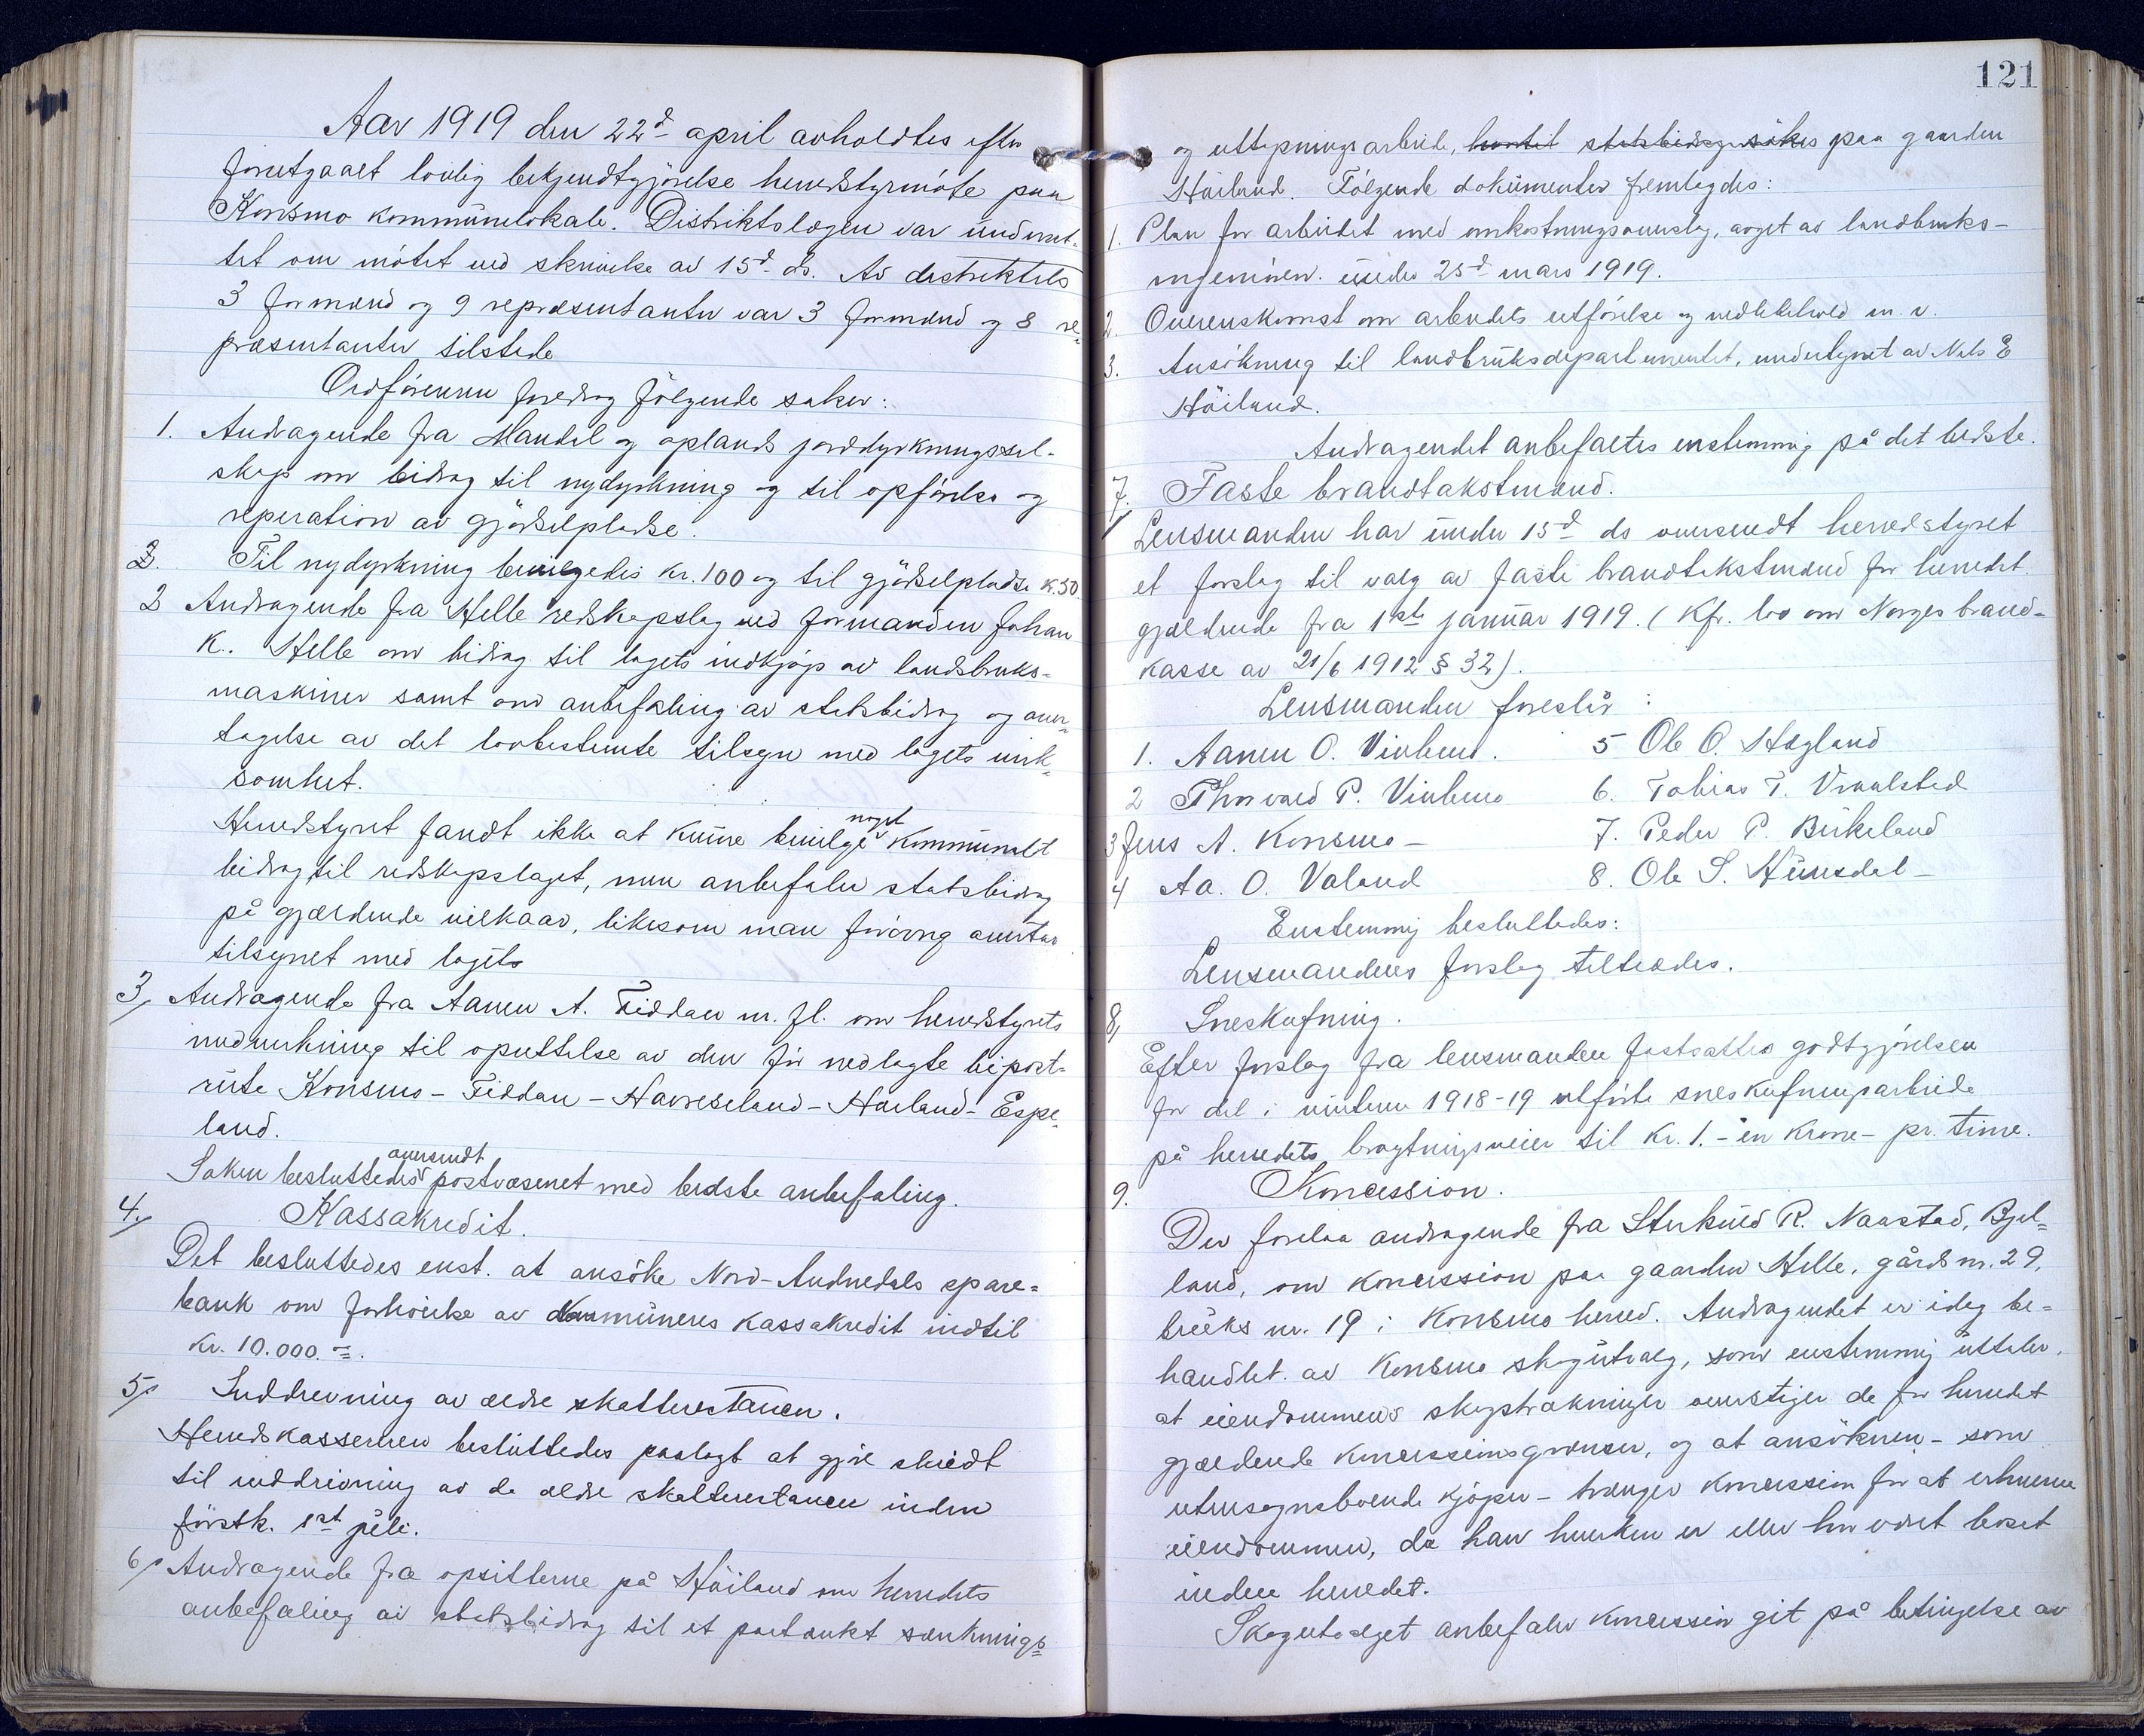 Aar 1919 den 22d april avholdtes efter
forutgaaet lovlig bekjendtgjörelse herredstyrmöte paa
Konsmo kommunelokale. Distriktslægen var underret-
tet om mötet ved skrivelse av 15d ds. Av distriktets
3 formænd og 9 repræsentanter var 3 formænd og 8 re-
præsentanter tilstede
Ordföreren foredrog fölgende saker:
1. Andragende fra Mandal og oplands jorddyrkningssel-
skap om bidrag til nydyrkning og til opförelse og
reperation av gjödselpladse.
2. Til nydyrkning bevilgedes kr. 100 og til gjödselpladse k. 50.
2 Andragende fra Helle redskapslag ved formanden Johan
K. Helle om bidrag til lagets indkjöp av landsbruks-
maskiner samt om anbefaling av statsbidrag og over-
tagelse av det lovbestemte tilsyn med lagets virk-
somhet.
Herredstyret fandt ikke at kunne bevilge noget kommunalt
bidrag til redskapslaget, men anbefaler statsbidrag
på gjældende vilkaar, likesom man forövrig overtar
tilsynet med lagets
3, Andragende fra Aanen A. Fiddan m. fl. om herredstyrets
medvirkning til oprettelse av den för nedlagte bipost-
rute Konsmo - Fiddan - Haveseland - Harland - Espe-
land.
Saken besluttedes oversendt postvæsenet med bedste anbefaling.
4, Kassakredit.
Det besluttedes enst. at ansöke Nord-Audnedals spare-
bank om forhöielse av kommunens kassakredit indtil
kr. 10.000.=.
5, Inddrevning av ældre skatterestancer.
Herredskassereren besluttedes paalagt at gjöre skridt
til inddrivning av de ældre skatterestancer inden
förstk. 1st juli.
6, Andragende fra opsitterne på Höiland om herredets
anbefaling av statsbidrag til et paatænkt sænknings-
121
og uttapningsarbeide, hvortil statsbidrag sökes paa gaarden
Höiland. Fölgende dokumenter fremlagdes:
1. Plan for arbeidet med omkostningsoverslag, avget av landbruks-
ingeniören under 25d mars 1919.
2. Overenskomst om arbeidets utförelse og vedlikehold m. v.
3. Ansökning til landbruksdepartementet, undertegnet av Nels E
Höiland.
Andragendet anbefaltes enstemmig på det bedste.
7. Faste brandtakstmænd.
Lensmanden har under 15d ds oversendt herredstyret
et forslag til valg av faste brandtakstmænd for herredet
gjældende fra 1ste januar 1919. (Kfr. lov om Norges brand-
kasse av 21/6 1912 § 32).
Lensmanden foreslår:
1. Aanen O. Viblemo. 5 Ole O. Högland
2 Thorvald P. Viblemo 6. Tobias T. Vraalsted
3 Jens A. Konsmo - 7. Peder P. Birkeland
4 Aa. O. Valand 8. Ole S. Hunsdal -
Enstemmig besluttedes:
Lensmandens forslag tiltrædes.
8, Sneskufning.
Efter forslag fra lensmanden fastsattes godtgjörelsen
for det i vinteren 1918-19 utförte sneskufningsarbeide
på herredets bragtningsveier til kr. 1. - en krone - pr. time.
9. Koncession.
Der forelaa andragende fra Sterkuld R. Naastad, Bjel-
land, om koncession paa gaarden Helle, gårds nr. 29,
bruks nr. 19 i Konsmo herred. Andragendet er idag be-
handlet av Konsmo skogutvalg, som enstemmig uttaler,
at eiendommens skogstrækninger overstiger de for herredet
gjældende koncessionsgrænser, og at ansökeren - som
utensognsboende kjöper - trænger koncession for at erhverve
eiendommen, da han hverken er eller har været boset
inden herredet.
Skogutvalget anbefaler koncession git på betingelse av